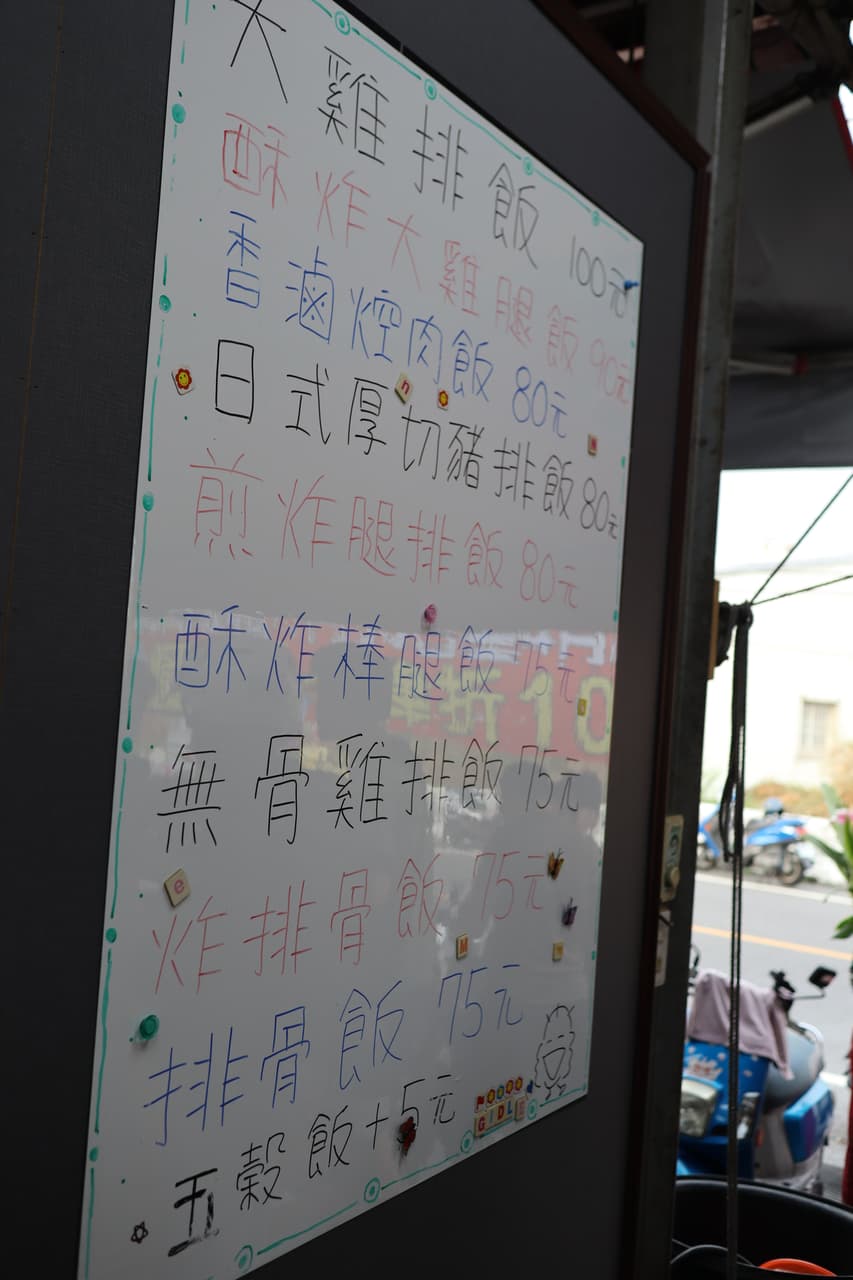 大雞排飯 100元
酥炸大雞腿飯 90元
香滷焢肉飯 80元
日式厚切豬排飯 80元
煎炸腿排飯 80元
酥炸棒腿飯 75元
無骨雞排飯 75元
炸排骨飯 75元
排骨飯 75元
五穀飯+5元
n
e
M
GIDLE